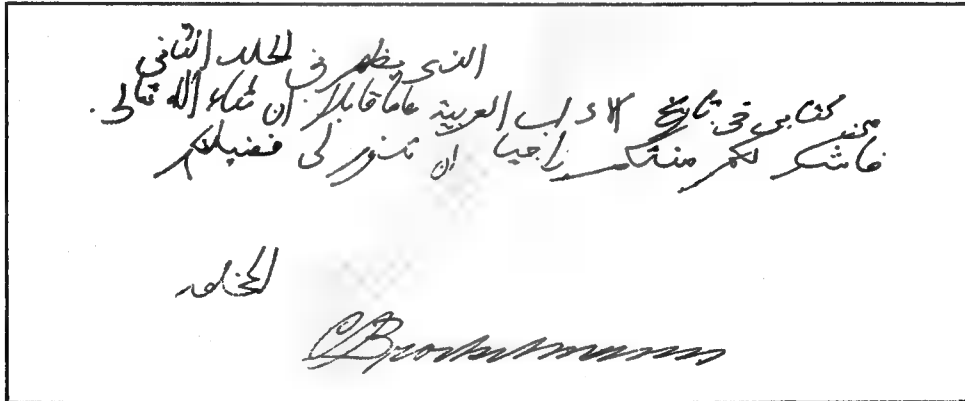 الذى يظهر فى المجلد الثانى
من كتابى فى تاريخ الآداب العربية عاما قابلا ان شاء الله تعالى.
فاشكر لكم منتكم راجيا ان
المخلص
C Brockelmann